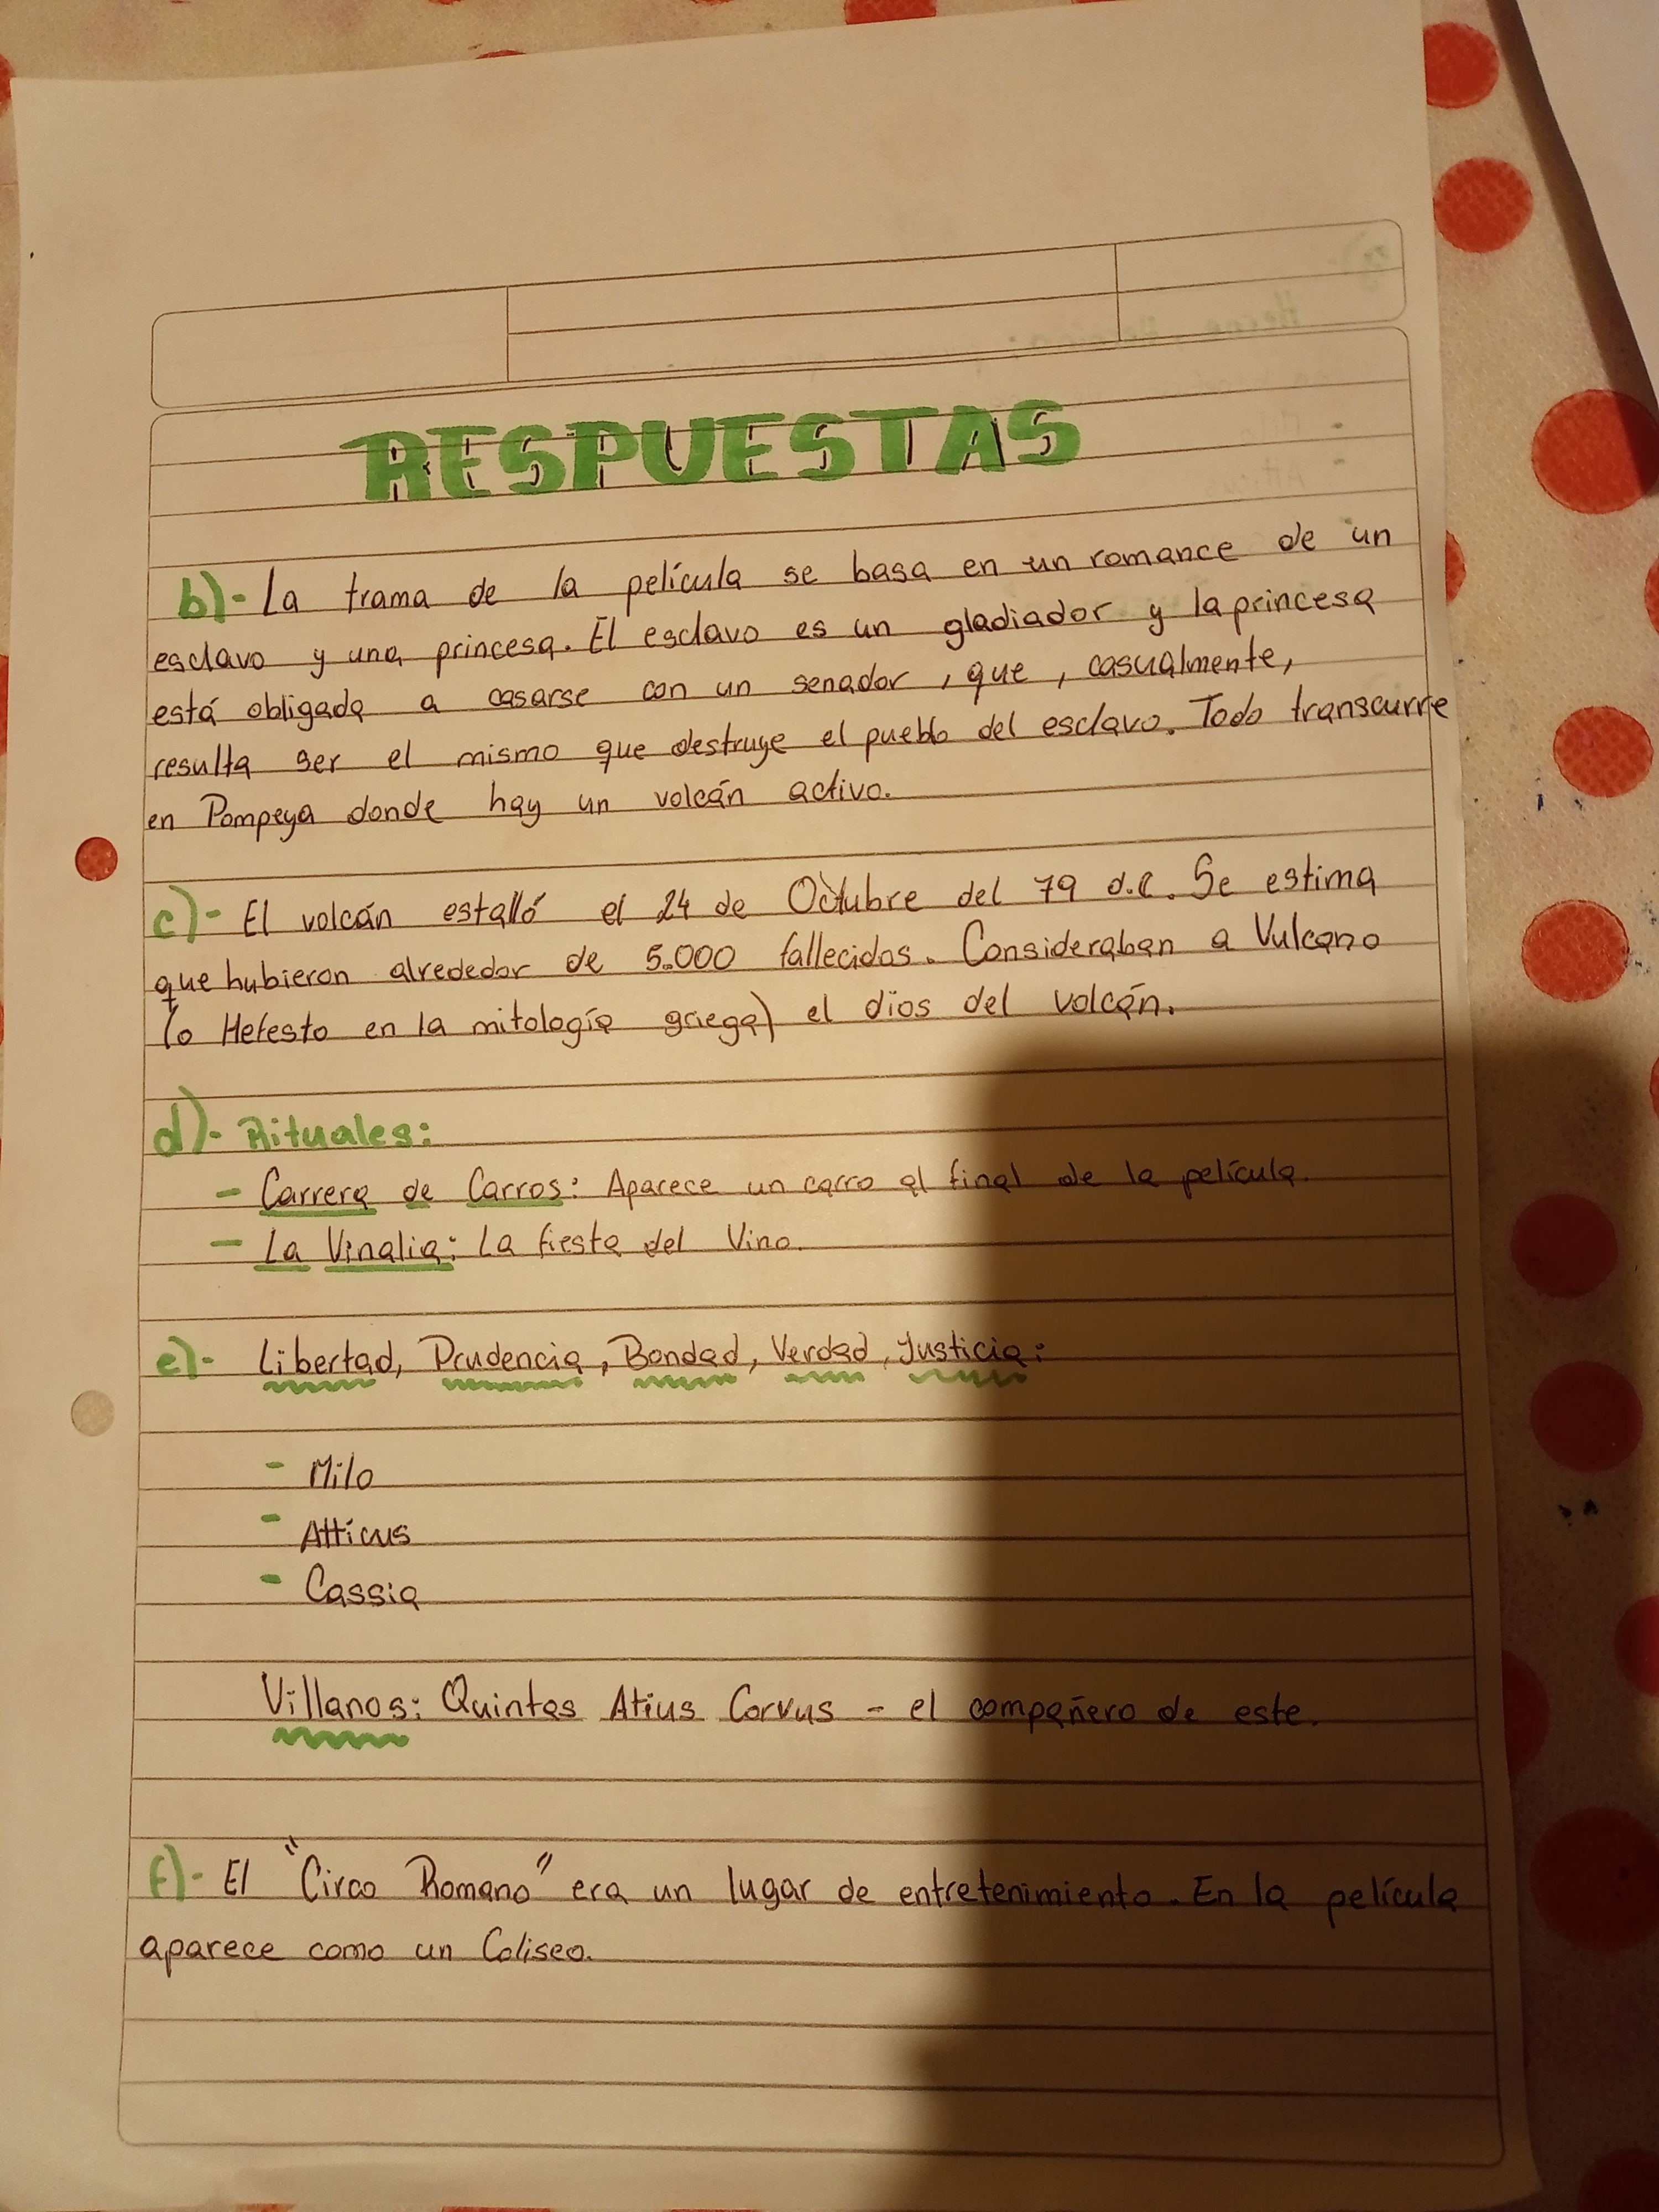 RESPUESTAS
b)- La trama de la película se basa en un romance de un
esclavo y una princesa. El esclavo es un gladiador y la princesa
está obligada a casarse con un senador, que, casualmente,
resulta ser el mismo que destruye el pueblo del esclavo. Todo transcurre
en Pompeya donde hay un volcán activo.
c)- El volcán estalló el 24 de Octubre del 79 d.C. Se estima
que hubieron alrededor de 5.000 fallecidos. Consideraban a Vulcano
(o Hefesto en la mitología griega) el dios del volcán.
d)- Rituales:
- Carrera de Carros: Aparece un carro al final de la película.
- La Vinalia: La fiesta del Vino.
e)- Libertad, Prudencia, Bondad, Verdad, Justicia:
- Milo
- Atticus
- Cassia
Villanos: Quintas Atius Corvus - el compañero de este.
f)- El "Circo Romano" era un lugar de entretenimiento. En la película
aparece como un Coliseo.